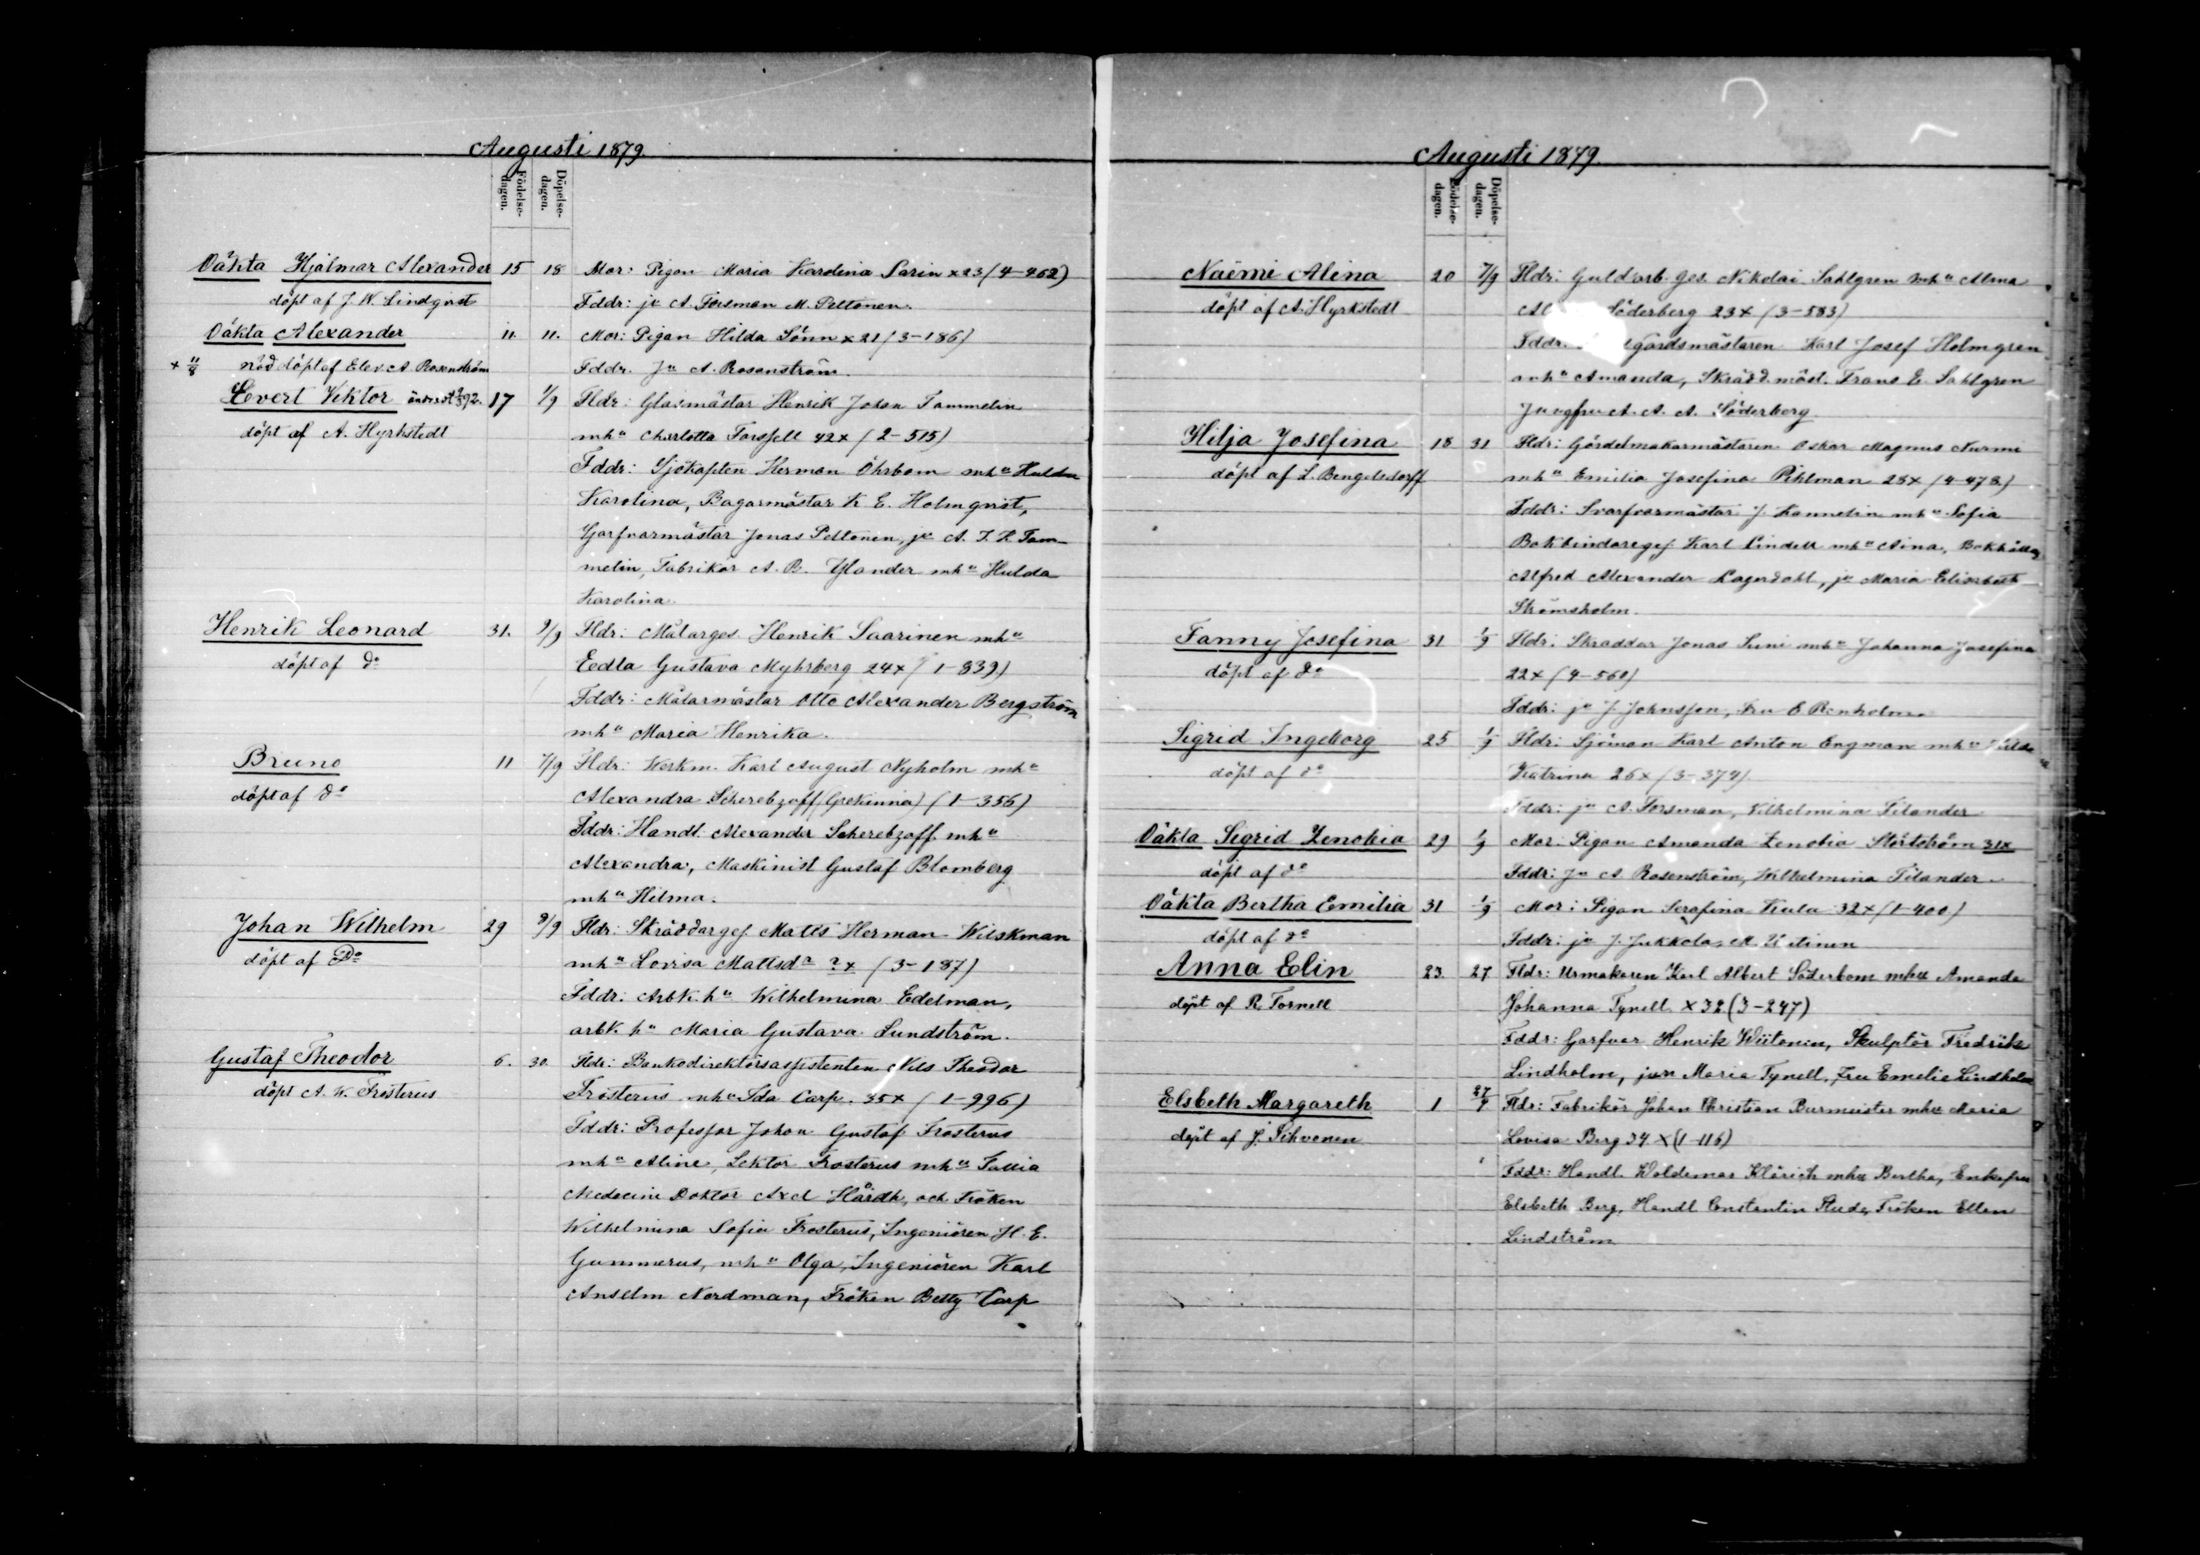 Augusti 1879.
Födelse-
dagen.
Döpelse-
dagen.
Oäkta Hjalmar Alexander 15 18 Mor: Pigan Maria Karolina Sarin x 23 (4-462)
döpt af J. W. Lindqvist Fddr: je A. Forsman M. Peltonen.
Oäkta Alexander 11. 11. Mor: Pigan Hilda Sönn x 21 (3-186)
+ 11/8 nöd döpt af Elev. A Rosenström Fddr. Ju A. Rosenström.
Evert Viktor 17 1/9 Fldr: Glasmästar Henrik Johan Tammelin
döpt af A. Hyrkstedt mhu Charlotta Forssell 42x (2-515)
Fddr: Sjökapten Herman Öhrbom mhu Hulda
Karolina, Bagarmästar K E. Holmqvist,
Garfvarmästar Jonas Peltonen, je A. I. H. Tam-
melin, Fabrikör A. B. Ylander mhu Hulda
Karolina.
Henrik Leonard 31. 9/9 Fldr: Målarges. Henrik Saarinen mhu
döpt af Do Eedla Gustava Myhrberg 24x (1-839)
Fddr: Målarmästar Otto Alexander Bergström
mhu Maria Henrika.
Bruno 11 7/9 Fldr: Werkm. Karl August Nyholm mhu
döpt af Do Alexandra Scherebzoff (Grekinna) (1-356)
Fddr: Handl. Alexander Scherebzoff mhu
Alexandra, Maskinist Gustaf Blomberg
mhu Hilma.
Johan Wilhelm 29 9/9 Fldr: Skräddarges. Matts Herman Wilskman
döpt af Do mhu Lovisa Mattsda ?x (3-187)
Fddr: Arbk. hu Wilhelmina Edelman,
arbk. hu Maria Gustava Sundström.
Gustaf Theodor 6. 30. Fldr: Bankodirektörsassistenten Nils Theodor
döpt A. W. Frosterus Frosterus mhu Ida Carp. 35x (1-996)
Fddr: Professor Johan Gustaf Frosterus
mhu Aline, Lektor Frosterus mhu
Medecine Doktor Axel Hårdh, och Fröken
Wilhelmina Sofia Frosterus, Ingeniören H. E.
Gummerus, mhu Olga, Ingeniören Karl
Anselm Nordman, Fröken Betty Carp
Augusti 1879.
Födelse-
dagen.
Döpelse-
dagen.
Naëmi Alina 20 7/9 Fldr: Guldarb. Ges. Nikolai Sahlgren mhu Alma
döpt af A. Hyrkstedt Söderberg 23x (3-583)
Fddr. gårdsmästaren Karl Josef Holmgren
mhu Amanda, Skrädd.mäst. Frans E. Sahlgren
Jungfru A. A. A. Söderberg
Hilja Josefina 18 31 Fldr: Gördelmakarmästaren Oskar Magnus Nurmi
döpt af L. Bengelsdorff mhu Emilia Josefina Pihlman 28x (4-478)
Fddr: Svarfvarmästar J. Kannelin mhu Sofia
Bokbindareges Karl Lindell mhu Aina, Bokhåll.
Alfred Alexander Lagerdahl, je Maria Elisabeth
Strömsholm.
Fanny Josefina 31 1/9 Fldr: Skräddar Jonas Suni mhu Johanna Josefina
döpt af do 22x (4-560)
Fddr: je J. Johnsson, Fru E.
Sigrid Ingeborg 25 1/9 Fldr: Sjöman Karl Anton Engman mhu
döpt af do Katrina 26x (3-379)
Fddr: je A. Forsman, Wilhelmina Tilander
Oäkta Sigrid Zenobia 29 1/9 Mor: Pigan Amanda Zenobia 31x
döpt af do Fddr: Ju A Rosenström, Wilhelmina Tilander.
Oäkta Bertha Emilia 31 1/9 Mor: Pigan Serafina 32x (1-400)
döpt af do Fddr: je J. Jukkola, M.
Anna Elin 23. 27 Fldr: Urmakaren Karl Albert Söderbom mhu Amanda
döpt af R. Tornell Johanna Tynell x 32 (3-247)
Fddr: Garfvar Henrik Wiitonen, Skulptör Fredrik
Lindholm, jun Maria Tynell, Fru Emelie Lindholm
Elsbeth Margareth 1 27/9 Fldr: Fabrikör Johan Christian Burmeister mhu Maria
döpt af J. Sihvonen Lovisa Berg 34 x (1-116)
Fddr: Handl. Woldemar Klärich mhu Bertha, Enkefru
Elsbeth Berg, Handl Constantin Stude, Fröken Ellen
Lindström